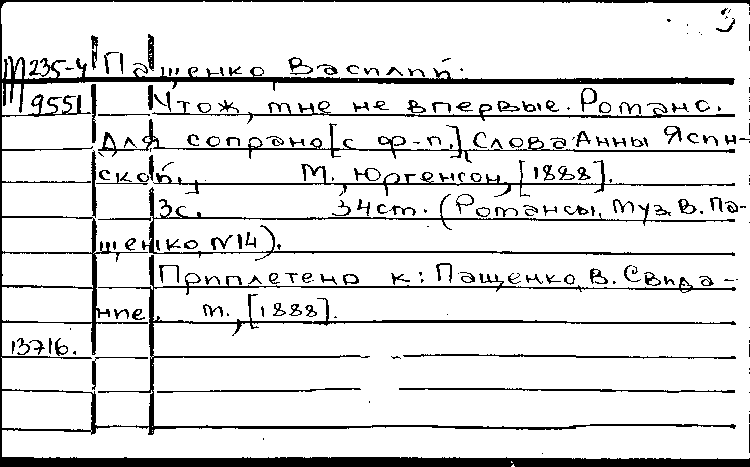 3
М 235-4 Пащенко, Василий.
9551 Чтож, мне не впервые. Романс.
Для сопрано [с ф-п.]. Слова Анны Яспи-
ской. М., Юргенсон, [1888].
3с. 34ст. (Романсы. Муз. В. Па-
щенко, N14).
Приплетено к: Пащенко, В. Свида-
ние. М., [1888].
13716.